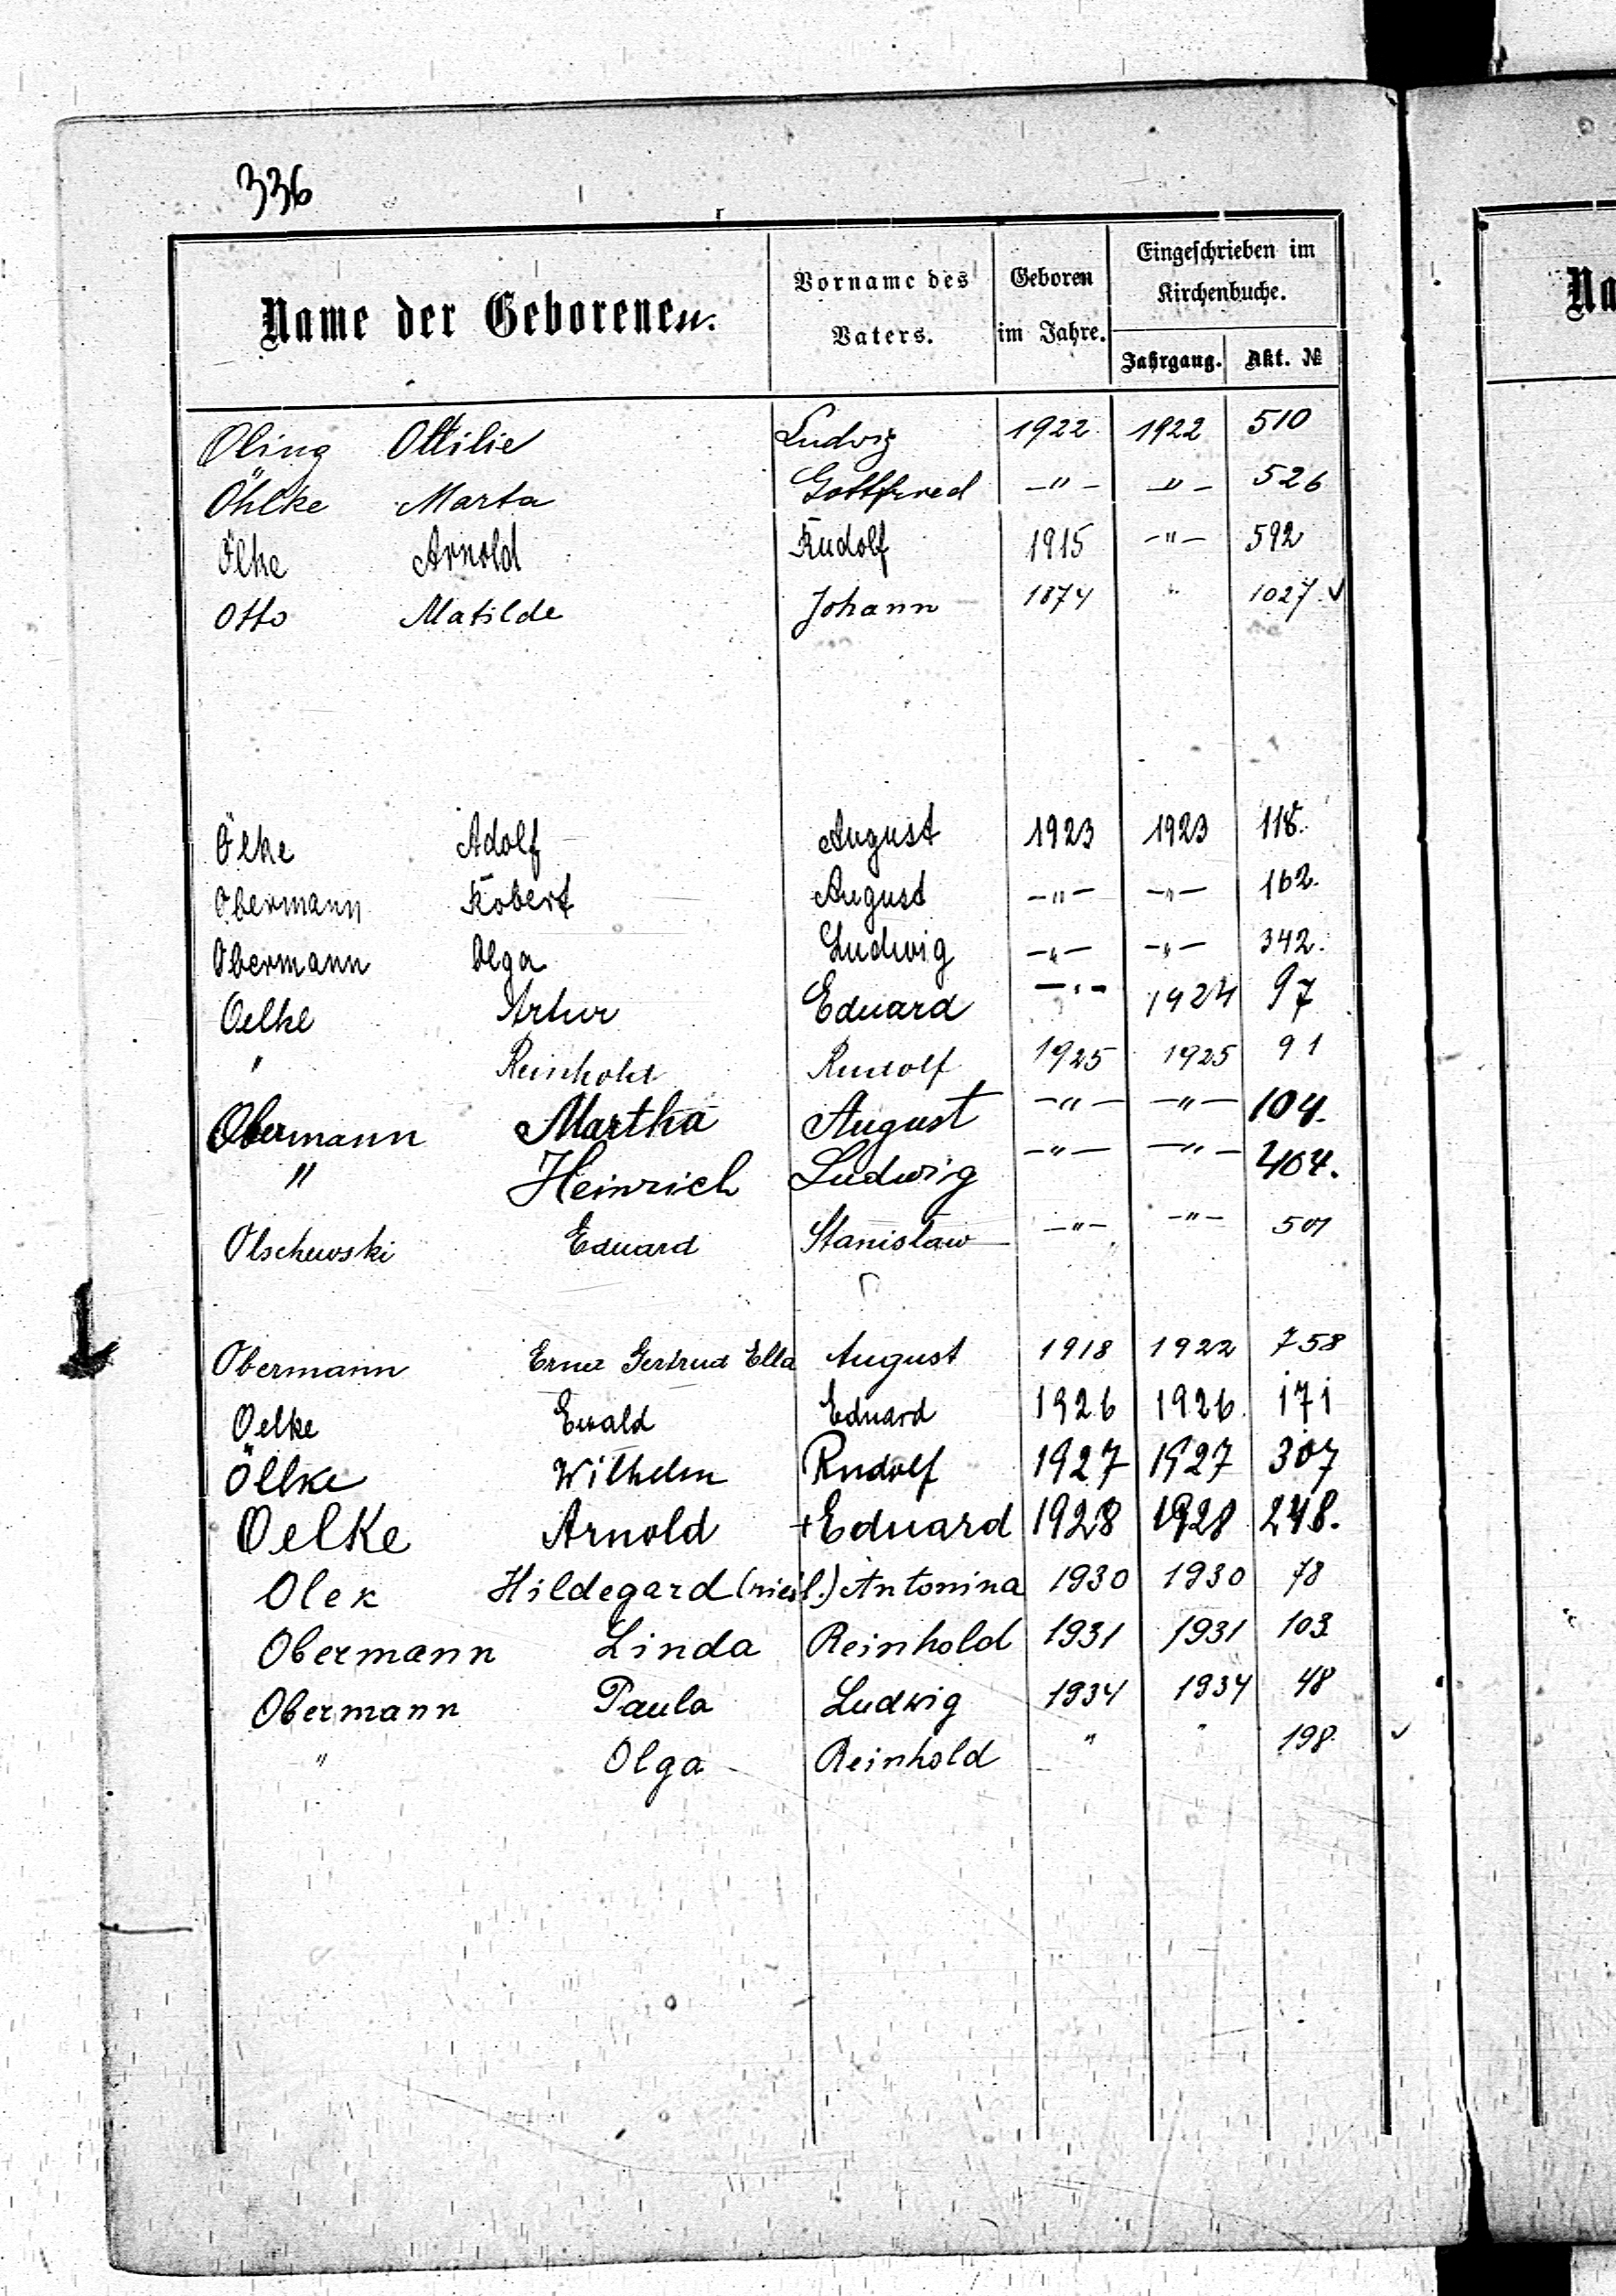 336
Name der Geborenen.
Vorname des Vaters.
Geboren im Jahre.
Eingeschrieben im Kirchenbuche.
Jahrgang. Akt. №
Oling Ottilie Ludwig 1922 1922 510
Öhlke Marta Gottfried -"- -"- 526
Ölke Arnold Rudolf 1915 -"- 592
Otto Matilde Johann 1874 " 1027 ✓
Ölke Adolf August 1923 1923 118.
Obermann Robert August -"- -"- 162.
Obermann Olga Ludwig -"- -"- 342.
Oelke Artur Eduard -"- 1924 97
" Reinhold Rudolf 1925 1925 91
Obermann Martha August -"- -"- 104.
" Heinrich Ludwig -"- -"- 404.
Olschewski Eduard Stanislaw -"- -"- 501
Obermann Erna Gertrud Ella August 1918 1922 758
Oelke Ewald Eduard 1926 1926. 171
Öllke Wilhelm Rudolf 1927 1927 307
Oelke Arnold +Eduard 1928 1928 248.
Olek Hildegard Antonina 1930 1930 78
Obermann Linda Reinhold 1931 1931 103
Obermann Paula Ludwig 1934 1934 48
" Olga Reinhold " " 198. ✓
Na